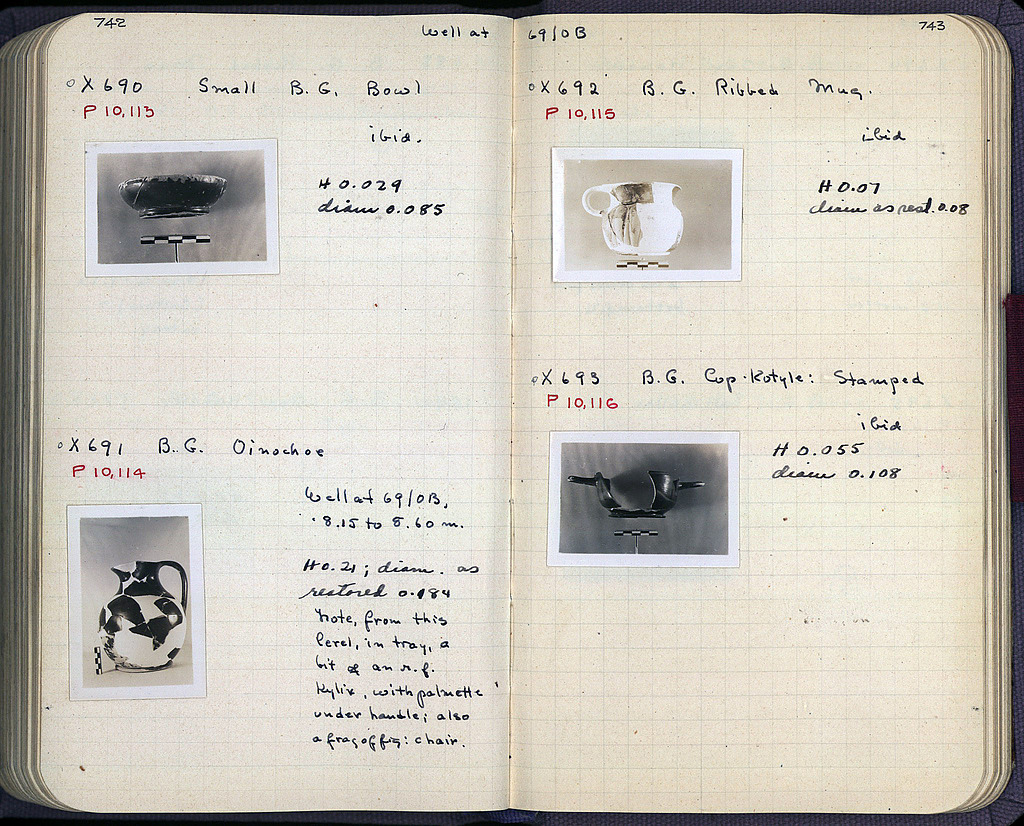 742
Well at
o X 690 Small B.G. Bowl
P 10,113
ibid.
H 0.029
diam 0.085
o X 691 B.G. Oinochoe
P 10,114
Well at 69/OB,
8.15 to 8.60 m.
H 0.21; diam. as
restored 0.184
Note, from this
level, in tray, a
bit of an r.f.
Kylix, with palmette
under handle; also
a frag of fig: chair.
69/OB
743
o X 692 B.G. Ribbed Mug.
P 10,115
ibid
H 0.07
diam as rest. 0.08
o X 693 B.G. Cup-Kotyle: Stamped
P 10,116
ibid
H 0.055
diam 0.108